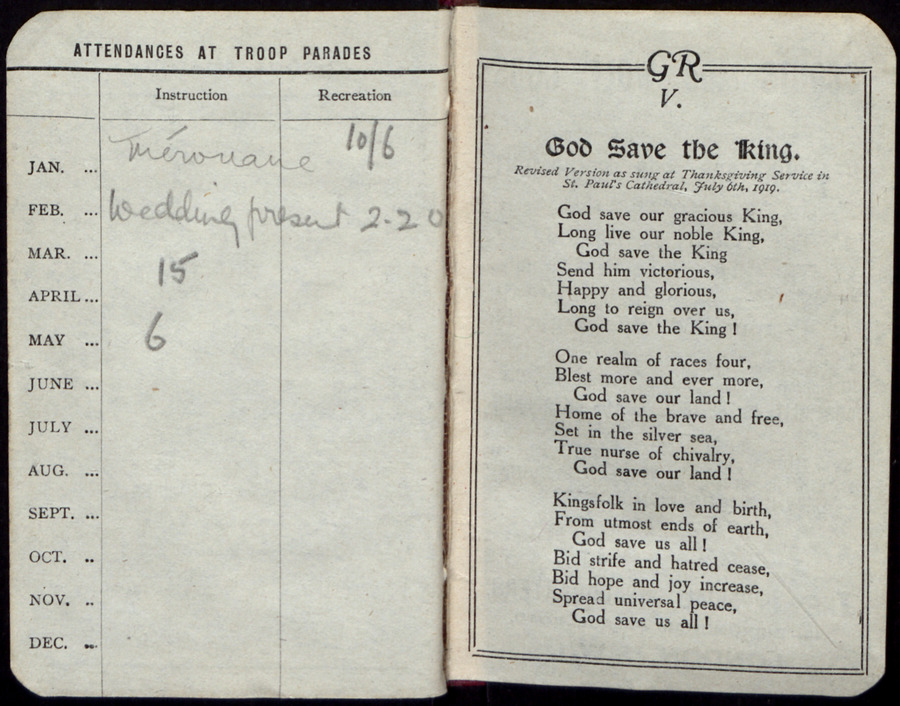 ATTENDANCES AT TROOP PARADES
Instruction Recreation
JAN. ... 10/6
FEB. ... Wedding present 2-2 0
MAR. ...
15
APRIL ...
MAY ... 6
JUNE ...
JULY ...
AUG. ...
SEPT. ...
OCT. ..
NOV. ..
DEC. ..
GR
V.
God Save the King.
Revised Version as sung at Thanksgiving Service in
St. Paul's Cathedral, July 6th, 1919.
God save our gracious King,
Long live our noble King,
God save the King
Send him victorious,
Happy and glorious,
Long to reign over us,
God save the King !
One realm of races four,
Blest more and ever more,
God save our land !
Home of the brave and free,
Set in the silver sea,
True nurse of chivalry,
God save our land !
Kingsfolk in love and birth,
From utmost ends of earth,
God save us all !
Bid strife and hatred cease,
Bid hope and joy increase,
Spread universal peace,
God save us all !